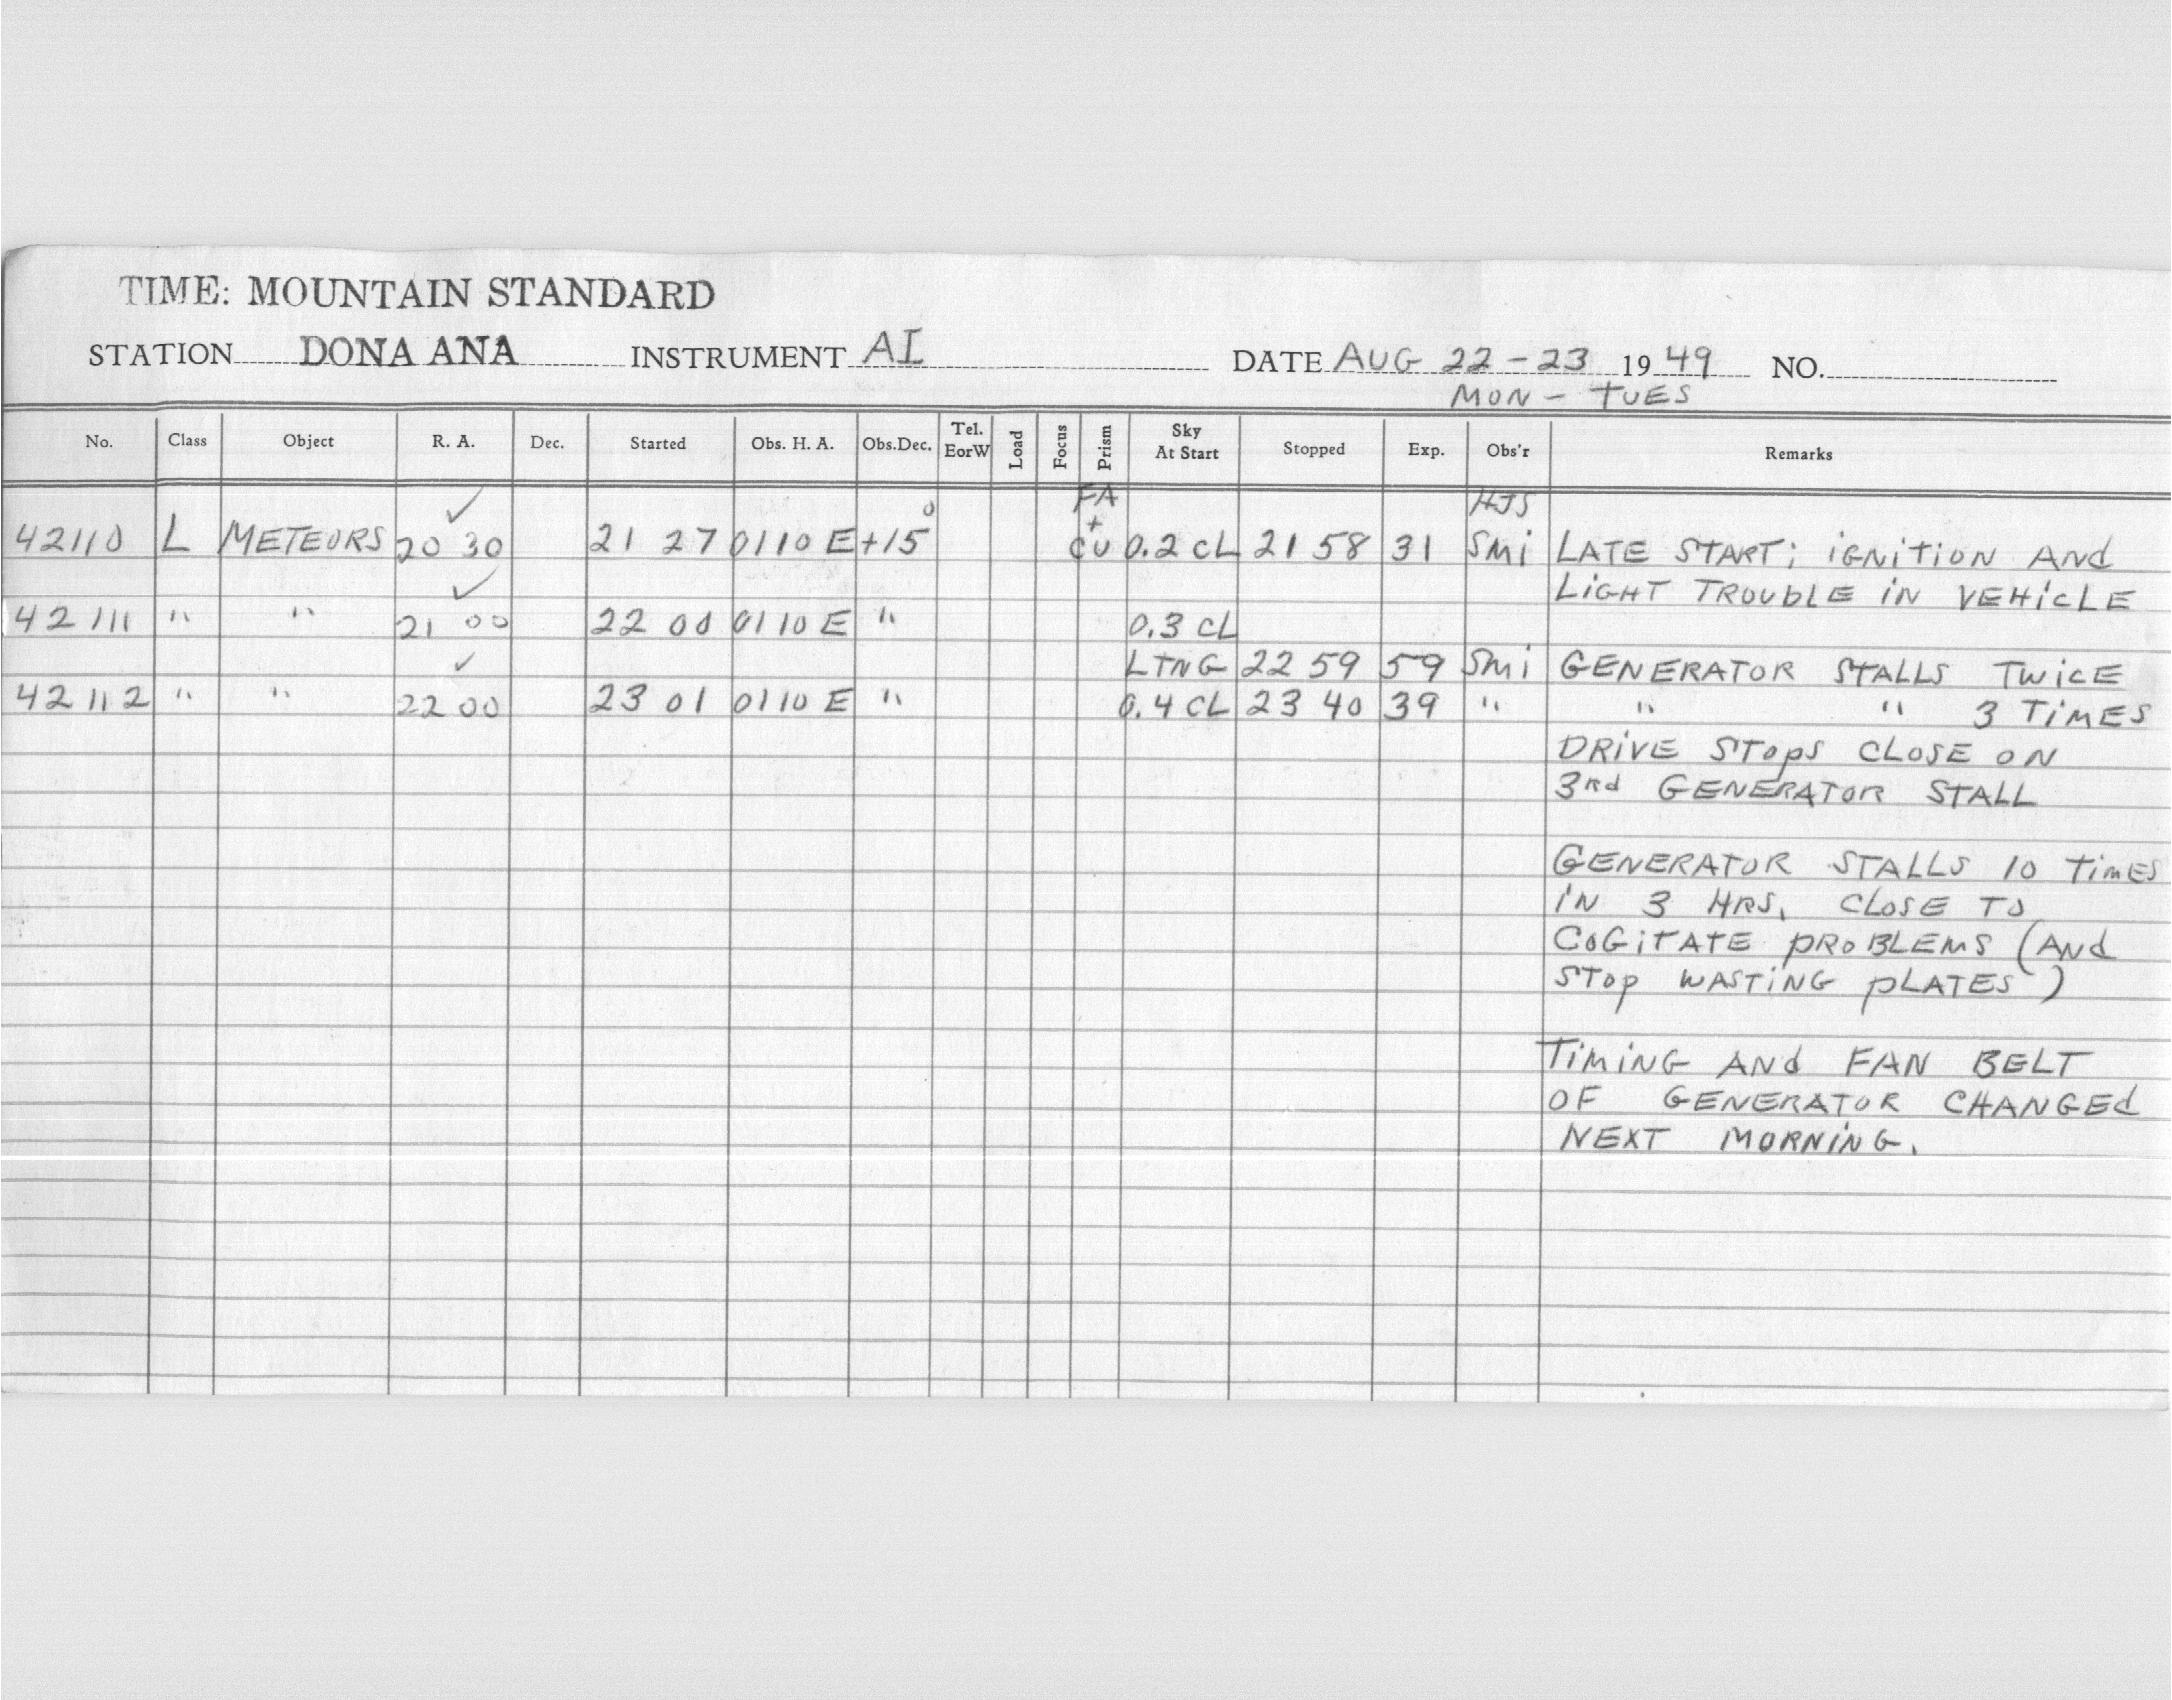 TIME: MOUNTAIN STANDARD
STATION DONA ANA INSTRUMENT AI DATE AUG 22-23 19 49 NO.
MON - TUES
No. Class Object R. A. Dec. Started Obs. H. A. Obs.Dec. Tel. EorW Load Focus Prism Sky At Start Stopped Exp. Obs'r Remarks
✓ FA HJS
42110 L METEORS 20 30 21 27 0110 E +15° + CU 0.2 CL 21 58 31 Smi LATE START; IGNITION AND
✓ LIGHT TROUBLE IN VEHICLE
42111 " " 21 00 22 00 0110 E " 0.3 CL
✓ LTNG 22 59 59 Smi GENERATOR STALLS TWICE
42112 " " 22 00 23 01 0110 E " 0.4 CL 23 40 39 " " " 3 TIMES
DRIVE STOPS CLOSE ON
3rd GENERATOR STALL
GENERATOR STALLS 10 TIMES
IN 3 HRS. CLOSE TO
COGITATE PROBLEMS (AND
STOP WASTING PLATES)
TIMING AND FAN BELT
OF GENERATOR CHANGED
NEXT MORNING.